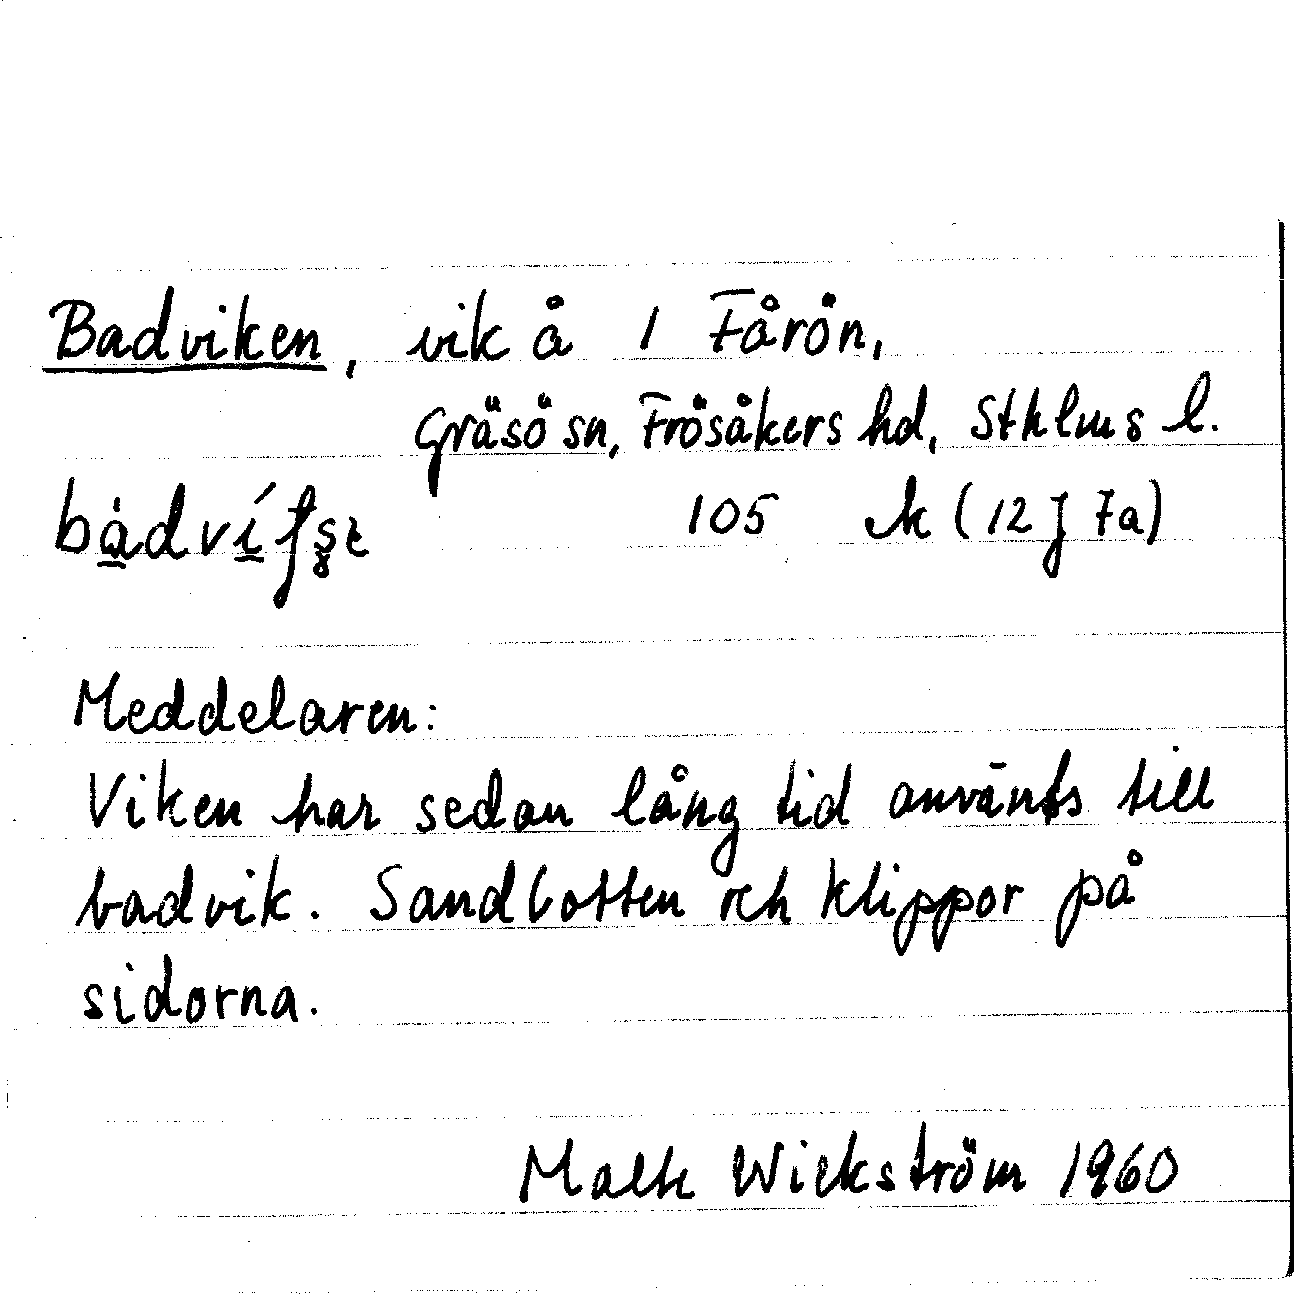 Badviken, vik å 1 Fårön,
Gräsö sn, Frösåkers hd, Sthlms l.
105 ek (12 J 7a)
Meddelaren:
Viken har sedan lång tid använts till
badvik. Sandbotten och klippor på
sidorna.
Malte Wickström 1960